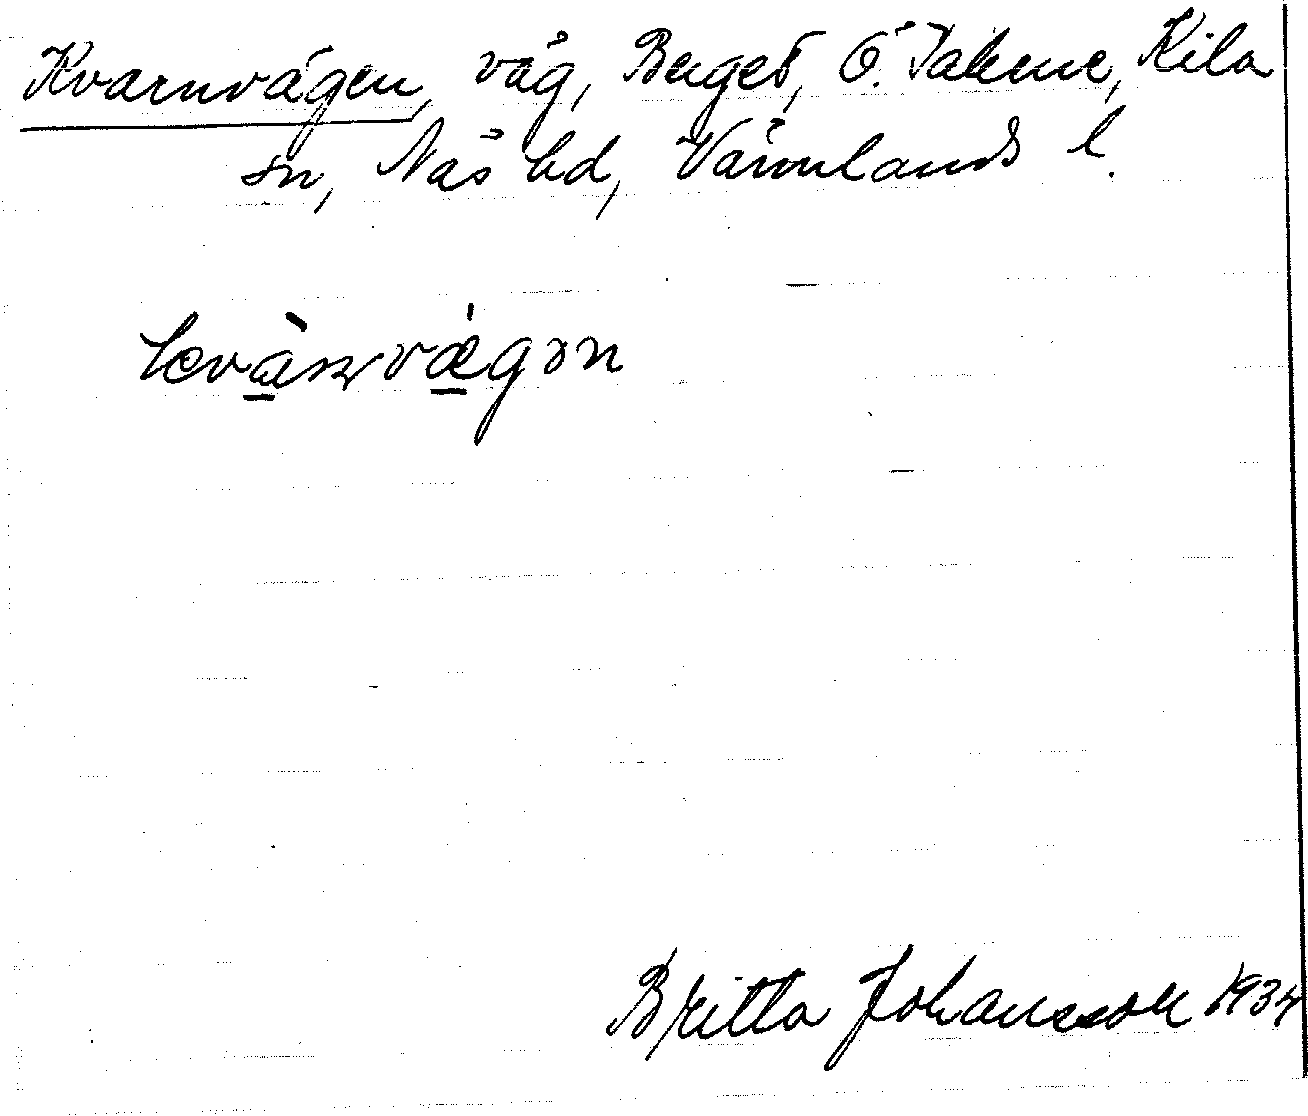 Kvarnvägen, väg, Berget, Ö. Takene, Kila
sn, Näs hd, Värmlands l.
kvànvǽgən
Britta Johansson 1934